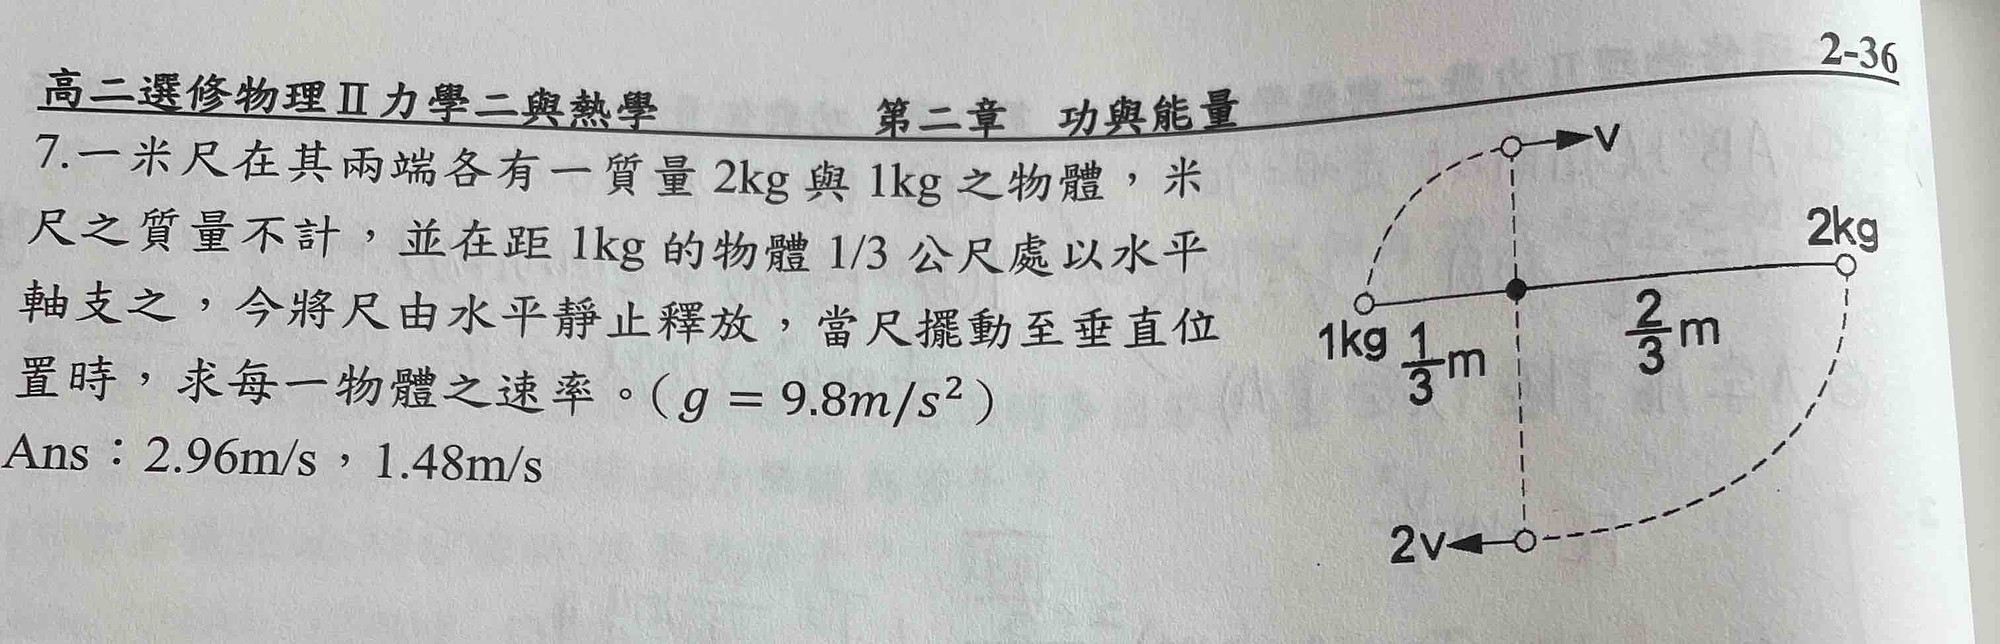 2-36
高二選修物理Ⅱ力學二與熱學 第二章 功與能量
7.一米尺在其兩端各有一質量 2kg 與 1kg 之物體，米
尺之質量不計，並在距 1kg 的物體 1/3 公尺處以水平
軸支之，今將尺由水平靜止釋放，當尺擺動至垂直位
置時，求每一物體之速率。(g = 9.8m/s²)
Ans：2.96m/s，1.48m/s
v
2kg
1kg 1/3 m
2/3 m
2v